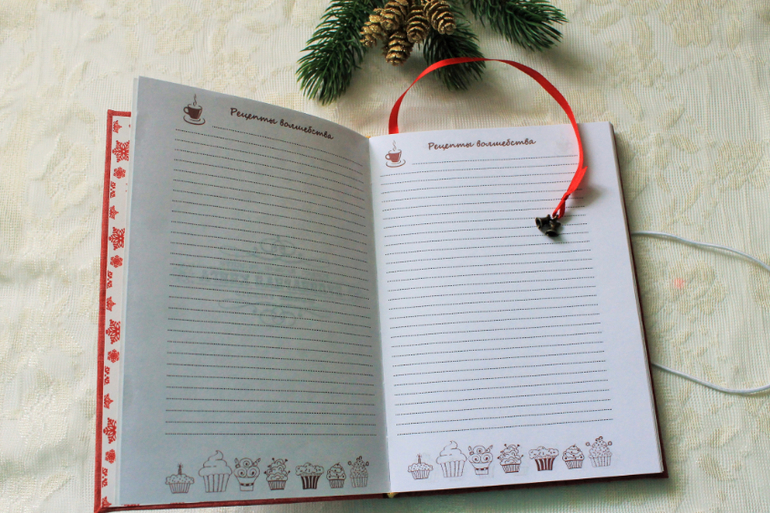 Рецепты волшебства
Рецепты волшебства